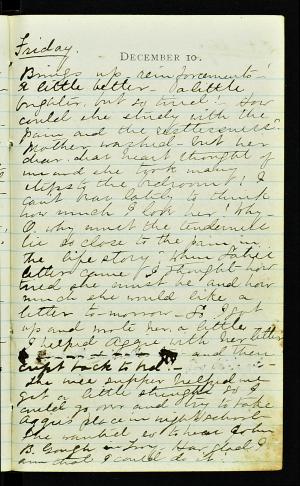 Friday.
December 10.
Brings up reinforcements!
A little better - a little
brighter, but so tired! - How
could she study with the
pain and the restlessness?
Mother washed - but her
dear, dear heart thought of
me and she took many
steps to the bedroom! I
can't bear lately to think
how much I took her! Why -
O, why must the tenderness
lie so close to the pain in
the life story - When
letter came I thought how
tired she must be and how
much she would like a
letter to-morrow - So I got
up and wrote her a little
I helped Aggie with her letter
and then
crept back to bed. -
The wee supper helped me
get a little strength so I
could go over and try to take
Aggie's place in night school
She wanted so to hear John
B. Gough How glad I
am that I could do it.